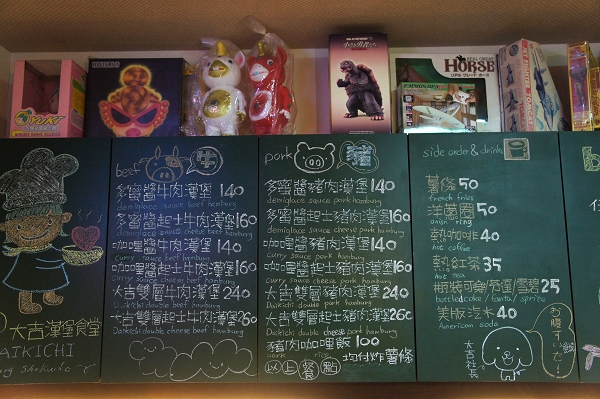 HORSE
大吉漢堡食堂
DAIKICHI
beef 牛
多蜜醬牛肉漢堡 140
demiglace sauce beef hamburg
多蜜醬起士牛肉漢堡 160
demiglace sauce cheese beef hamburg
咖哩醬牛肉漢堡 140
curry sauce beef hamburg
咖哩醬起士牛肉漢堡 160
curry sauce cheese beef hamburg
大吉雙層牛肉漢堡 240
Daikichi double beef hamburg
大吉雙層起士牛肉漢堡 260
Daikichi double cheese beef hamburg
pork 豬
多蜜醬豬肉漢堡 140
demiglace sauce pork hamburg
多蜜醬起士豬肉漢堡 160
demiglace sauce cheese pork hamburg
咖哩醬豬肉漢堡 140
curry sauce pork hamburg
咖哩醬起士豬肉漢堡 160
curry sauce cheese pork hamburg
大吉雙層豬肉漢堡 240
Daikichi double pork hamburg
大吉雙層起士豬肉漢堡 260
Daikichi double cheese pork hamburg
豬肉咖哩飯 100
pork rice
以上餐點均付炸薯條
side order & drink
薯條 50
french fries
洋蔥圈 50
onion ring
熱咖啡 40
hot coffee
熱紅茶 35
hot tea
瓶裝可樂/芬達/雪碧 25
bottled coke / fanta / sprite
美版汽水 40
American soda
お腹すいた!
飯
大吉社長